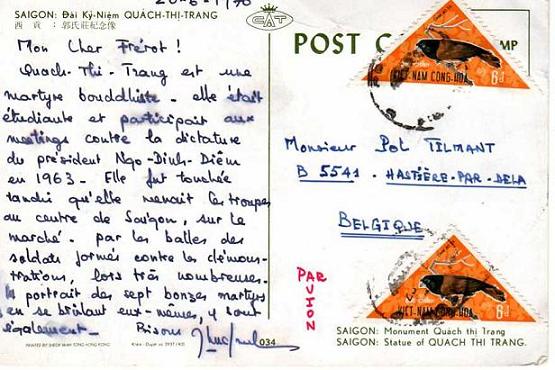 20-6-1970
SAIGON: Đài Kỷ-Niệm QUÁCH-THỊ-TRANG
西貢：郭氏莊紀念像
Mon Cher Frérot !
Quach-Thi-Trang est une
martyre bouddhiste - elle était
étudiante et participait aux
meetings contre la dictature
du président Ngo-Dinh-Diêm
en 1963. Elle fut touchée
tandis qu'elle menait les troupes
au centre de Saïgon, sur le
marché. par les balles des
soldats formés contre les démons-
trations, lors très nombreuses.
portrait des sept bonzes martyrs
en se brûlant eux-mêmes, y sont
également_ Bisous
PRINTED BY HONG KONG
034
CAT
POST
MP
VIỆT-NAM CỘNG-HÒA
6đ
Monsieur Pol TILMANT
B 5541 - HASTIÈRE-PAR-DELA
BELGIQUE
PAR
AVION
VIỆT-NAM CỘNG-HÒA
6đ
SAIGON: Monument Quách thị Trang
SAIGON: Statue of QUACH THI TRANG.